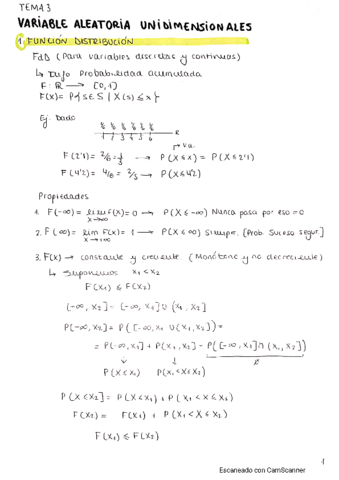 TEMA 3
VARIABLE ALEATORIA UNIDIMENSIONALES
1. FUNCIÓN DISTRIBUCIÓN
FdD (Para variables discretas y continuas)
↳ Dujo Probabilidad acumulada
F: ℝ → [0,1]
F(x) = P{s ∈ S / X(s) ≤ x}
Ej. Dado
1/6 1/6 1/6 1/6 1/6 1/6
R
v.a.
F(2'1) = 2/6 = 1/3 → P(X ≤ x) = P(X ≤ 2'1)
F(4'2) = 4/6 = 2/3 → P(X ≤ 4'2)
Propiedades
1. F(-∞) = lim F(x) = 0 → P(X ≤ -∞) Nunca pasa por eso = 0
x→-∞
2. F(∞) = lim F(x) = 1 → P(X ≤ ∞) Siempre. [Prob. Suceso segur.]
x→+∞
3. F(x) → constante y creciente (Monótona y no decreciente)
↳ Suponemos x₁ < x₂
F(x₁) ≤ F(x₂)
(-∞, x₂] = (-∞, x₁] ∪ (x₁, x₂]
P(-∞, x₂] = P([-∞, x₁] ∪ (x₁, x₂]) =
= P(-∞, x₁] + P(x₁, x₂] - P([-∞, x₁] ∩ (x₁, x₂]
P(X ≤ x₁) P(x₁ < X ≤ x₂) ∅
P(X ≤ x₂] = P(X ≤ x₁) + P(x₁ < X ≤ x₂)
F(x₂) = F(x₁) + P(x₁ < X ≤ x₂)
F(x₁) ≤ F(x₂)
1
Escaneado con CamScanner